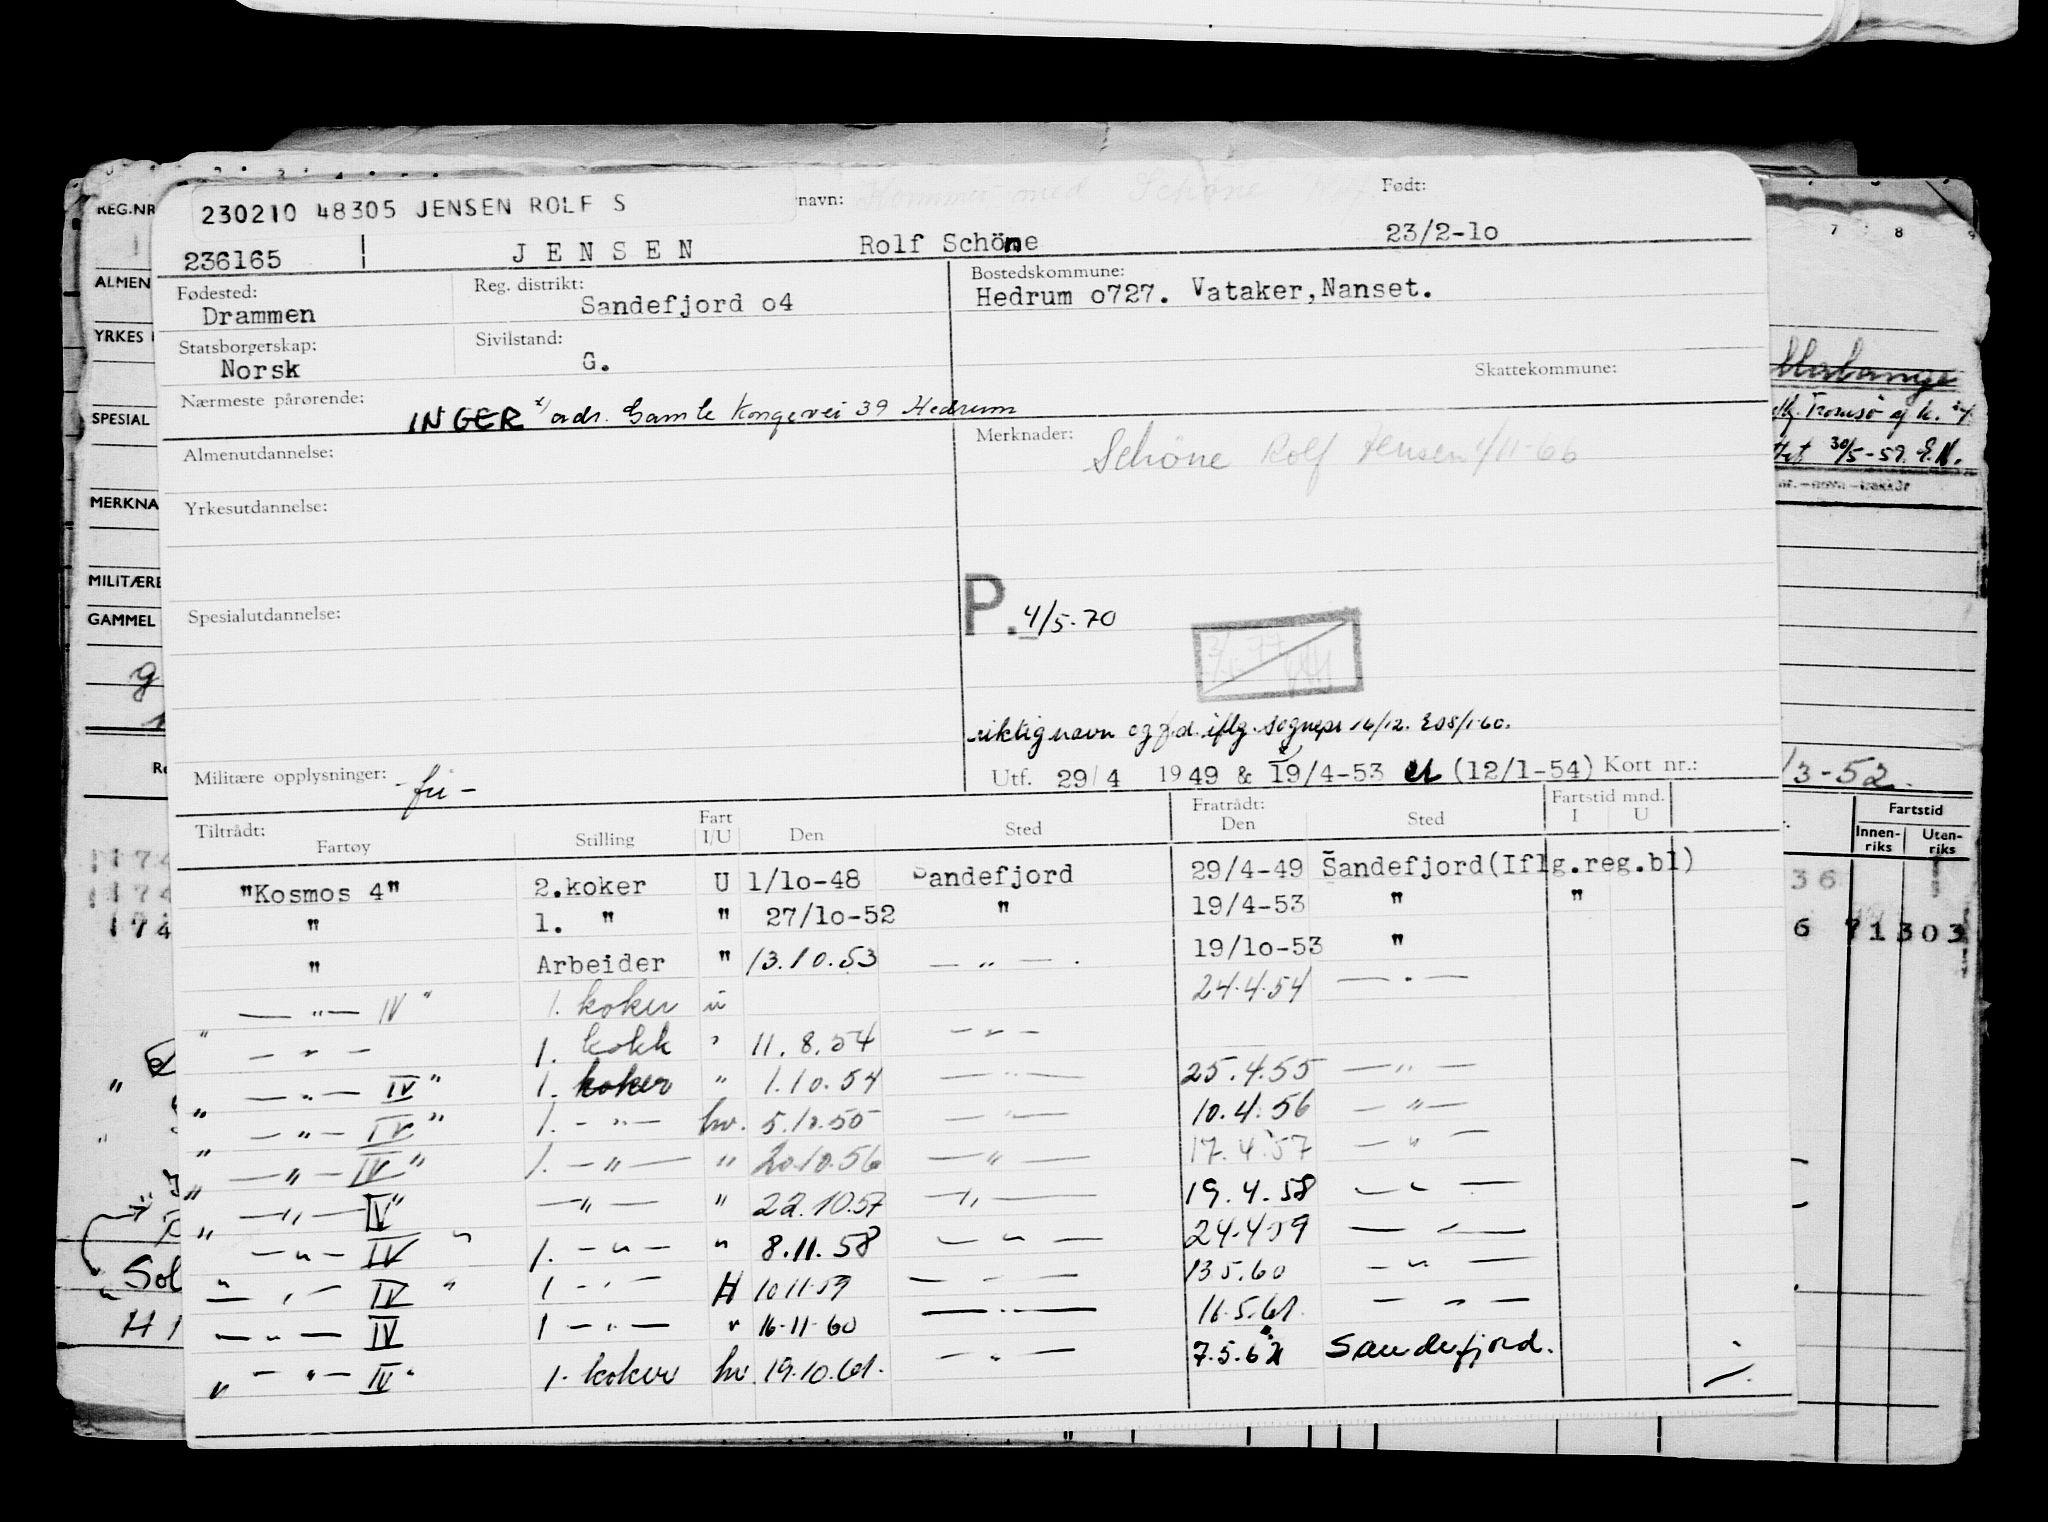 230210 48305 JENSEN ROLF S
rnavn:
Født:
236165 J E N S E N Rolf Schöne 23/2-1o
Fødested: Drammen
Reg. distrikt: Sandefjord o4
Bostedskommune: Hedrum o727. Vataker,Nanset.
Statsborgerskap: Norsk
Sivilstand: G.
Skattekommune:
Nærmeste pårørende: INGER x) adr. Gamle Kongevei 39 Hedrum
Almenutdannelse:
Merknader: Schöne Rolf Jensen 1/11-66
Yrkesutdannelse:
Spesialutdannelse:
P. 4/5-70
riktig navn og f.d. iflg. sognepr 16/12.
Militære opplysninger: -fri-
Utf. 29/4 1949 & 19/4-53 (12/1-54) Kort nr.:
Tiltrådt: Fratrådt: Fartstid mnd.
Fartøy Stilling Fart I/U Den Sted Den Sted I U
"Kosmos 4" 2.koker U 1/1o-48 Sandefjord 29/4-49 Sandefjord(Iflg.reg.bl)
" 1. " " 27/1o-52 " 19/4-53 " "
" Arbeider " 13.10.53 — " — . 19/1o-53 "
— " — IV " 1. koker u 24.4.54 — " —
" — " — 1. kokk " 11.8.54 — " —
" — " — IV " 1. koker " 1.10.54 — " — 25.4.55 — " —
" — " — IV " 1. — " — hv. 5.10.55 — " — 10.4.56 — " —
" — " — IV " 1. — " — " 20.10.56 — " — 17.4.57 — " —
" — " — IV " — " — " 22.10.57 — " — 19.4.58 — " —
" — " — IV " 1. — " — " 8.11.58 — " — 24.4.59 — " —
" — " — IV " 1 — " — H 10.11.59 — " — 13.5.60 — " —
— " — IV 1 — " — " 16-11-60 — " — 16.5.61. — " —
" — " — IV " 1. koker hv. 19.10.61. — " — 7.5.62 Sandefjord.
REG.NR
ALMEN
YRKES
SPESIAL
MERKNA
MILITÆRE
GAMMEL
174
174
174
Sol
H
7 8 9
30/5-59.
/3-52.
Fartstid
Innen-riks Uten-riks
36
6 71303